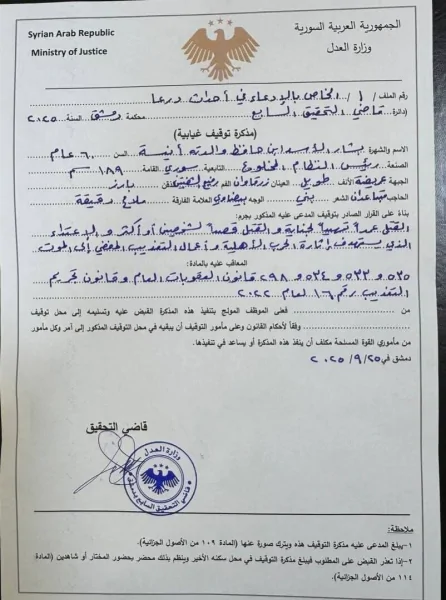 Syrian Arab Republic
Ministry of Justice
الجمهورية العربية السورية
وزارة العدل
رقم الملف / ١ / الخاص بالإدعاء في أحداث درعا
دائرة / قاضي التحقيق السابع محكمة دمشق السنة ٢٠٢٥
(مذكرة توقيف غيابية)
الاسم والشهرة بشار الأسد ابن حافظ والدته أنيسة السن ٦٠ عام
الصنعة رئيس النظام المخلوع التابعية سوري القامة ١٨٩ سم
الجبهة عريضة الأنف طويل العينان زرقاوان الفم رفيع الشفتين بارز
الحاجب الشعر بني الوجه بيضاوي العلامة الفارقة ملامح دقيقة
بناءً على القرار الصادر بتوقيف المدعى عليه المذكور بجرم:
القتل عمداً تمهيداً لجناية والقتل قصداً لشخصين أو أكثر والاعتداء
الذي يستهدف إثارة الحرب الأهلية وأعمال التعذيب المفضي إلى الموت
المعاقب عليه بالمادة:
٥٣٥ و ٥٣٣ و ٥٣٤ و ٢٩٨ قانون العقوبات العام وقانون تجريم
التعذيب رقم ١٦ لعام ٢٠٢٢
من فعلى الموظف المولج بتنفيذ هذه المذكرة القبض عليه وتسليمه إلى محل توقيف
وفقاً لأحكام القانون وعلى مأمور التوقيف أن يبقيه في محل التوقيف المذكور إلى أمر آخر وكل مأمور
من مأموري القوة المسلحة مكلف أن ينفذ هذه المذكرة أو يساعد في تنفيذها.
دمشق في ٢٥/٩/٢٠٢٥
قاضي التحقيق
وزارة العدل
قاضي التحقيق السابع بدمشق
ملاحظة:
١-يبلغ المدعى عليه مذكرة التوقيف هذه ويترك صورة عنها (المادة ١٠٩ من الأصول الجزائية).
٢-إذا تعذر القبض على المطلوب فيبلغ مذكرة التوقيف في محل سكنه الأخير وينظم بذلك محضر بحضور المختار أو شاهدين (المادة
١١٤ من الأصول الجزائية).